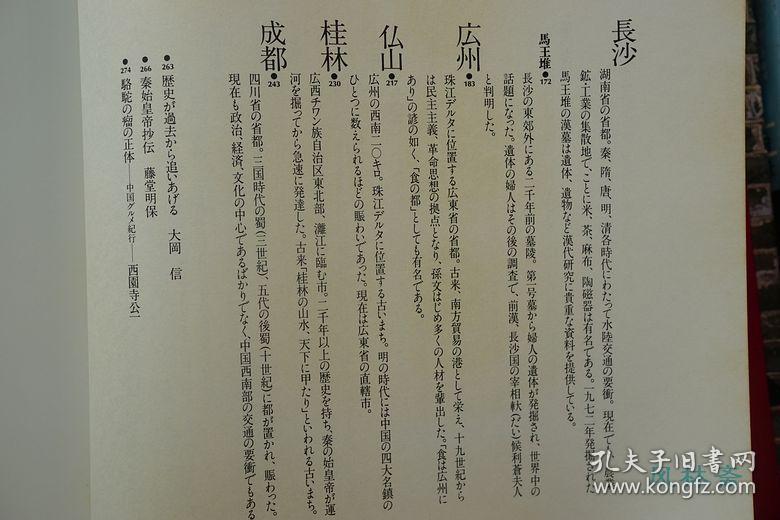 長沙
湖南省の省都。秦、隋、唐、明、清各時代にわたって水陸交通の要衝。現在で
鉱・工業の集散地で、ことに米、茶、麻布、陶磁器は有名である。一九七二年発掘された
馬王堆の漢墓は遺体、遺物など漢代研究に貴重な資料を提供している。
馬王堆●172
長沙の東郊外にある二千年前の墓陵。第一号墓から婦人の遺体が発掘され、世界中の
話題になった。遺体の婦人はその後の調査で、前漢、長沙国の宰相軑(だい)候利蒼夫人
と判明した。
広州●183
珠江デルタに位置する広東省の省都。古来、南方貿易の港として栄え、十九世紀から
は民主主義、革命思想の拠点となり、孫文はじめ多くの人材を輩出した。「食は広州に
あり」の諺の如く、「食の都」としても有名である。
仏山●217
広州の西南二〇キロ。珠江デルタに位置する古いまち。明の時代には中国の四大名鎮の
ひとつに数えられるほどの賑わいであった。現在は広東省の直轄市。
桂林●230
広西チワン族自治区東北部、灕江に臨む市。二千年以上の歴史を持ち、秦の始皇帝が運
河を掘ってから急速に発達した。古来「桂林の山水、天下に甲たり」といわれる古いまち。
成都●243
四川省の省都。三国時代の蜀(三世紀)、五代の後蜀(十世紀)に都が置かれ、賑わった。
現在も政治、経済、文化の中心であるばかりでなく、中国西南部の交通の要衝でもある
●263 歴史が過去から追いあげる 大岡 信
●266 秦始皇帝抄伝 藤堂明保
●274 駱駝の瘤の正体──中国グルメ紀行──西園寺公一
孔夫子旧书网
www.kongfz.com